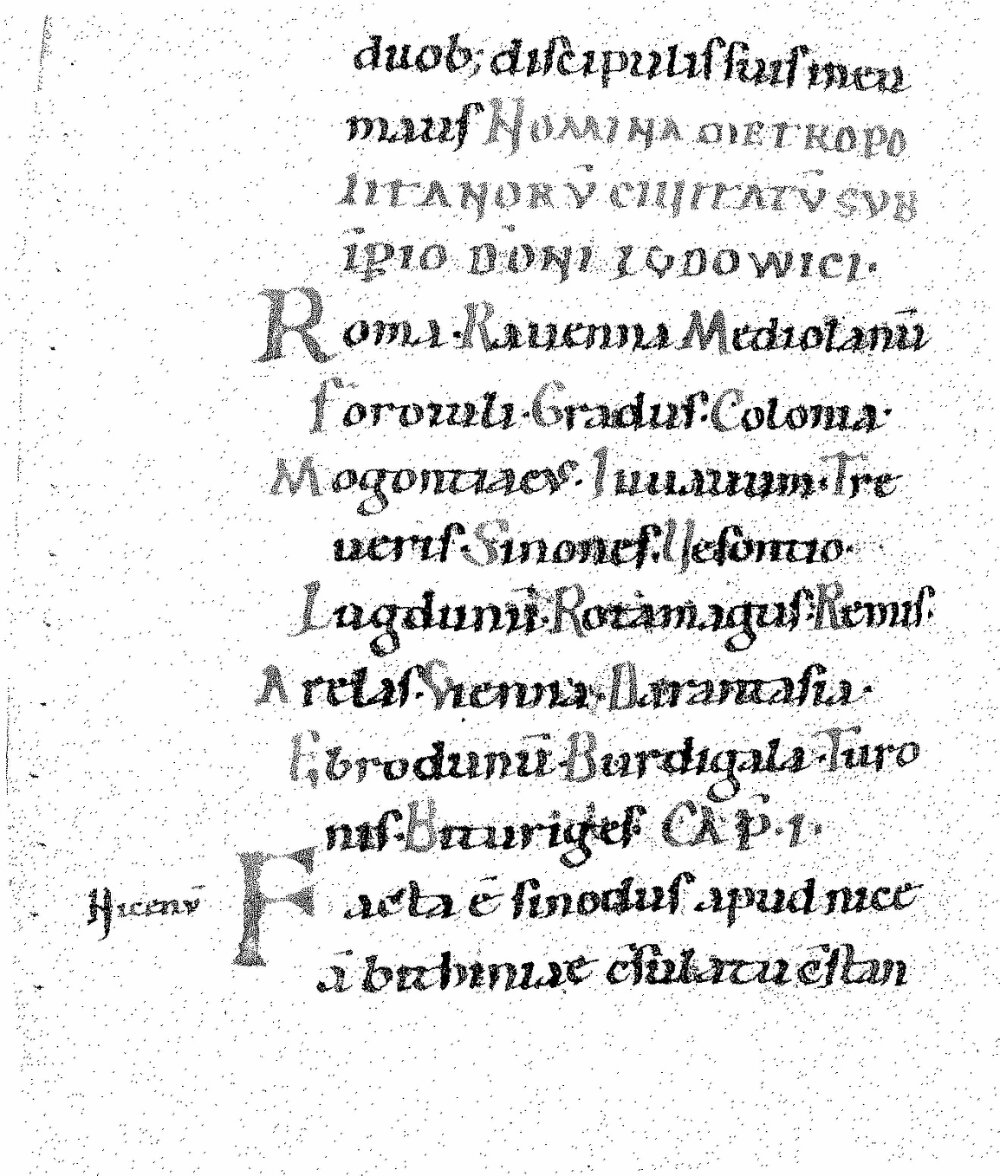 duob; discipulis suis in eu
maus NOMINA METROPO
LITANORŪ CIUITATŪ SUB
IP̄IO DOM̄NI LUDOWICI.
Roma. Rauenna Mediolanū
foroiuli. Gradus. Colonia.
Mogontiacus. Iuuauum. Tre
ueris. Sinones. Uesontio.
Lugdunū. Rotamagus. Remis.
Arelas. Vienna. Darantasia.
Ebrodunū. Burdigala. Turo
nis. Bituriges. CAP̄. I.
Nicenū
Facta ē sinodus apud nice
ā bithiniae c̄sulatu c̄stan